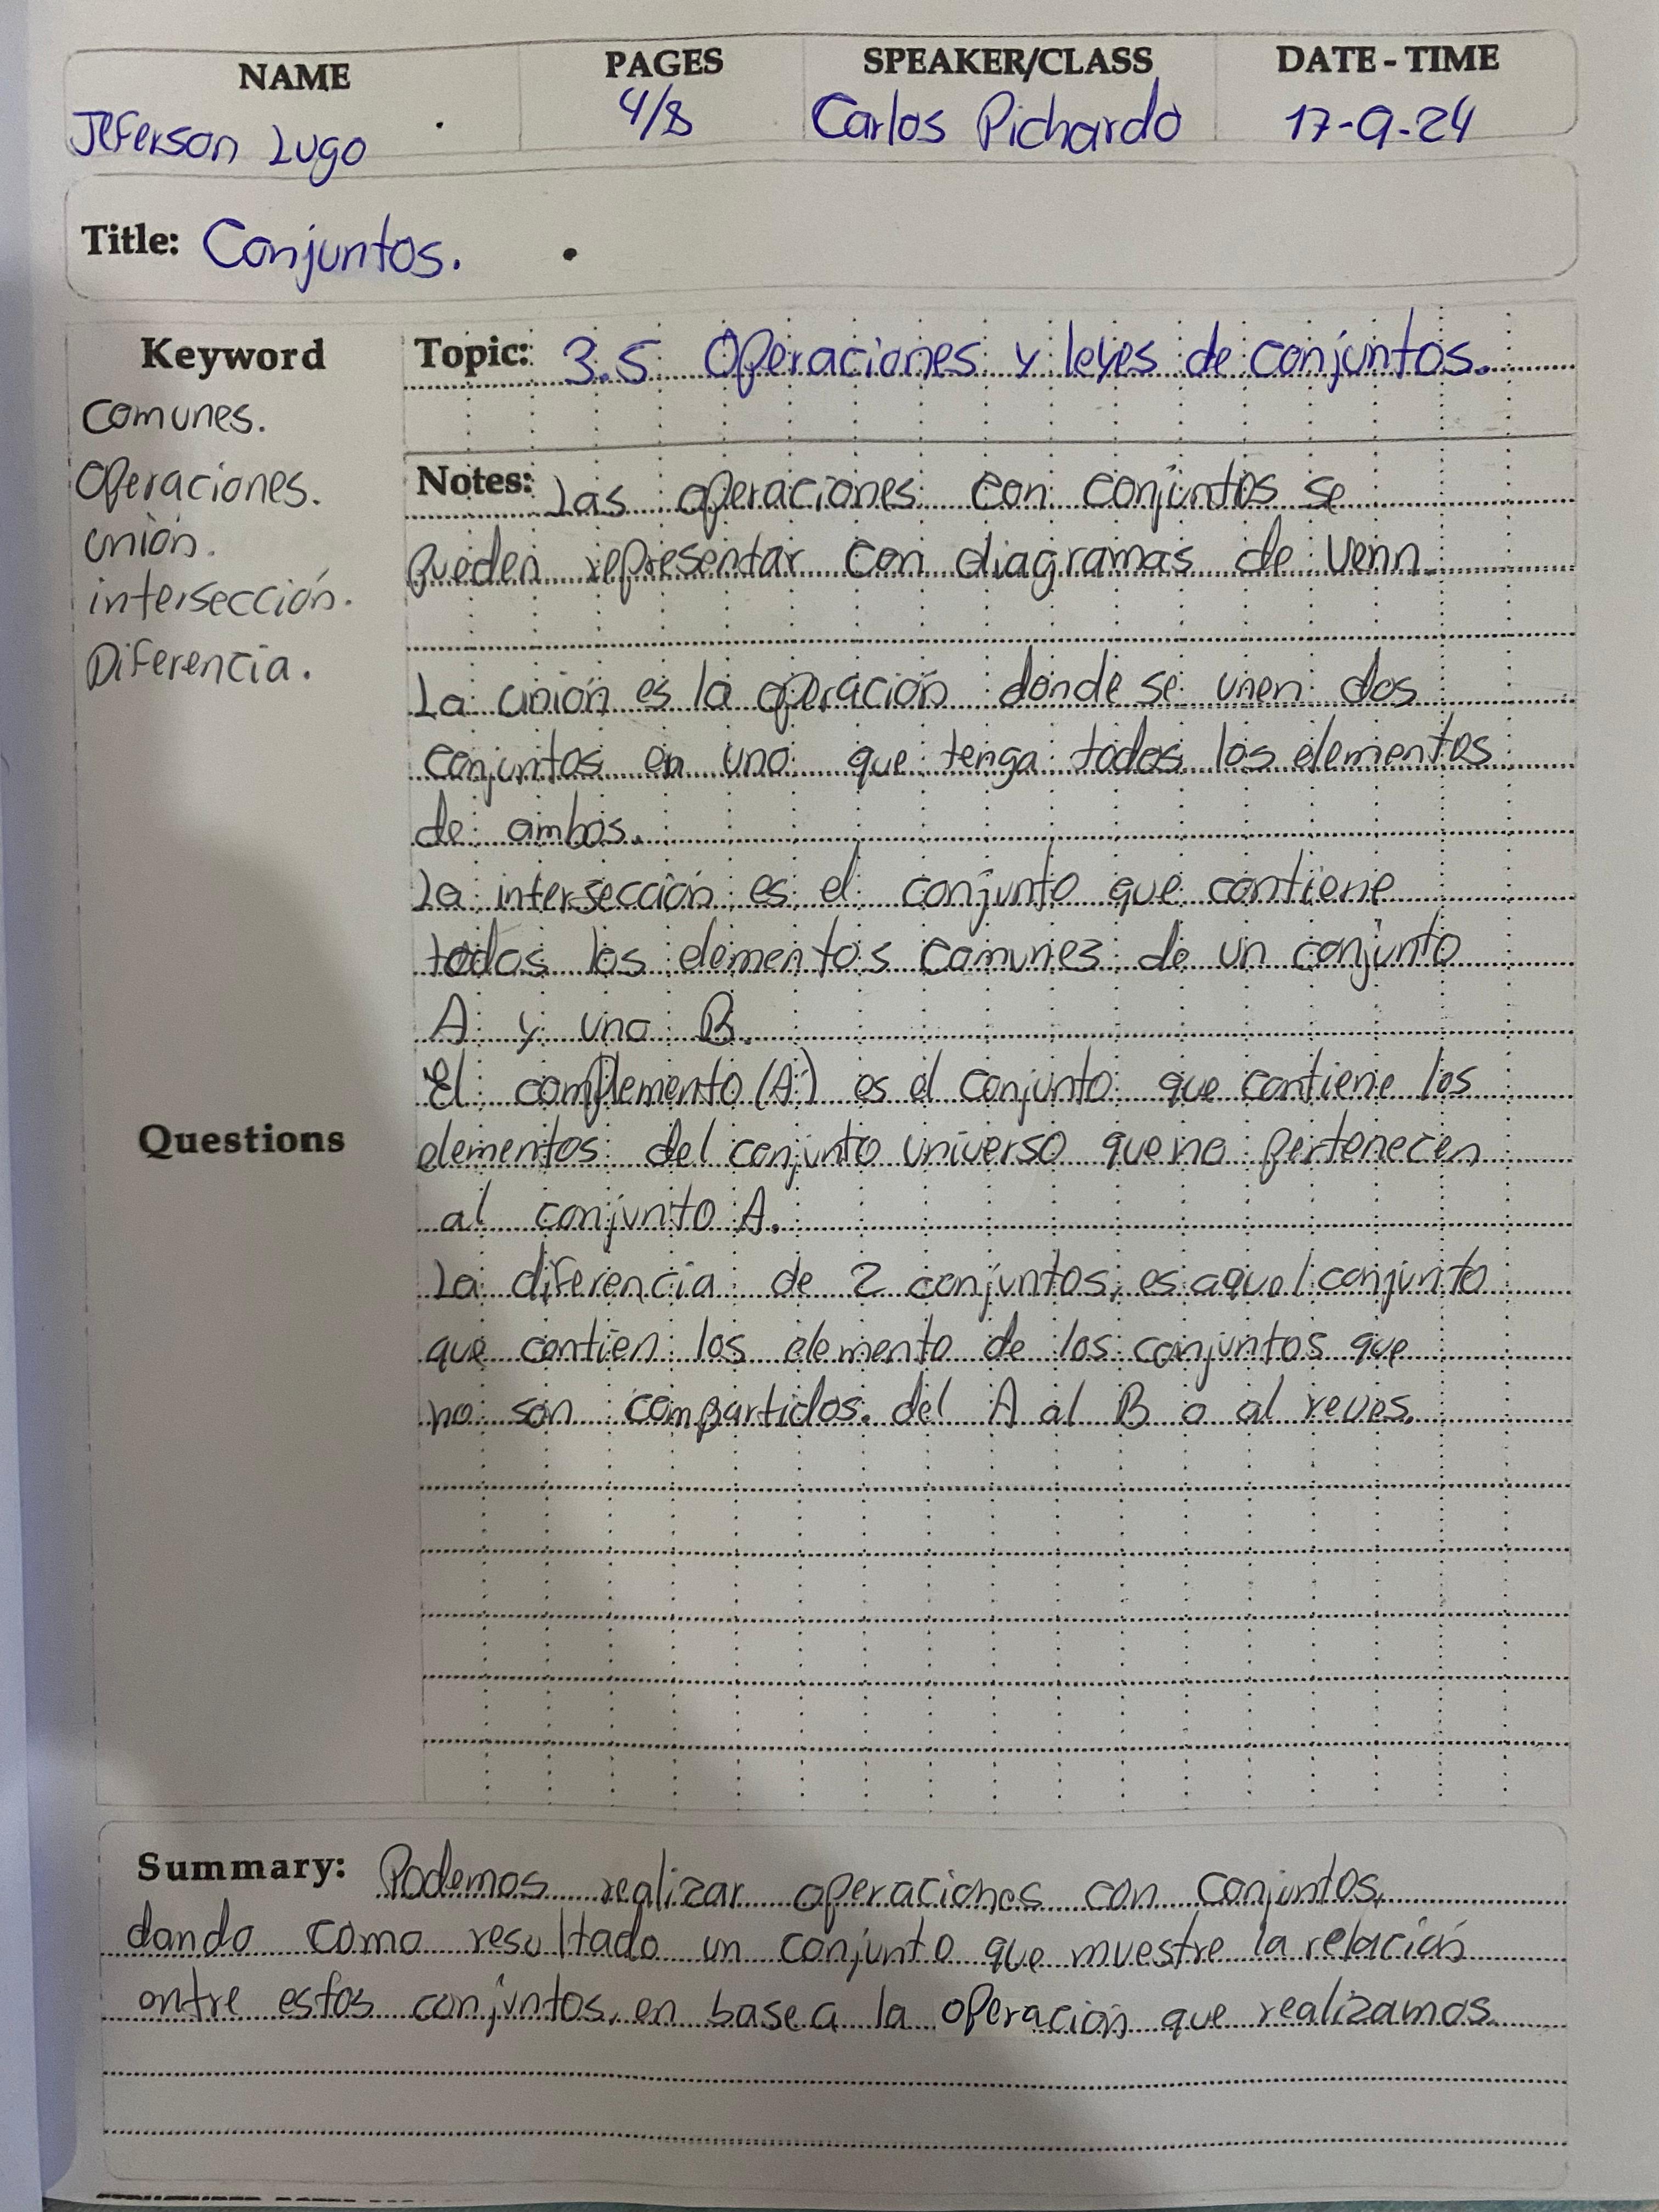 NAME
PAGES
SPEAKER/CLASS
DATE - TIME
Jeferson Lugo
4/8
Carlos Pichardo
17-9-24
Title: Conjuntos.
Keyword
comunes.
Operaciones.
unión.
intersección.
Diferencia.
Questions
Topic: 3.5 Operaciones y leyes de conjuntos.
Notes: Las operaciones con conjuntos se
pueden representar con diagramas de Venn.
La unión es la operación donde se unen dos
conjuntos en uno que tenga todos los elementos
de ambos.
La intersección es el conjunto que contiene
todos los elementos comunes de un conjunto
A y uno B.
El complemento (A') es el conjunto que contiene los
elementos del conjunto universo que no pertenecen
al conjunto A.
La diferencia de 2 conjuntos, es aquel conjunto
que contien los elemento de los conjuntos que
no son compartidos. del A al B o al reves.
Summary: Podemos realizar operaciones con conjuntos,
dando como resultado un conjunto que muestre la relación
entre estos conjuntos, en base a la operación que realizamos.